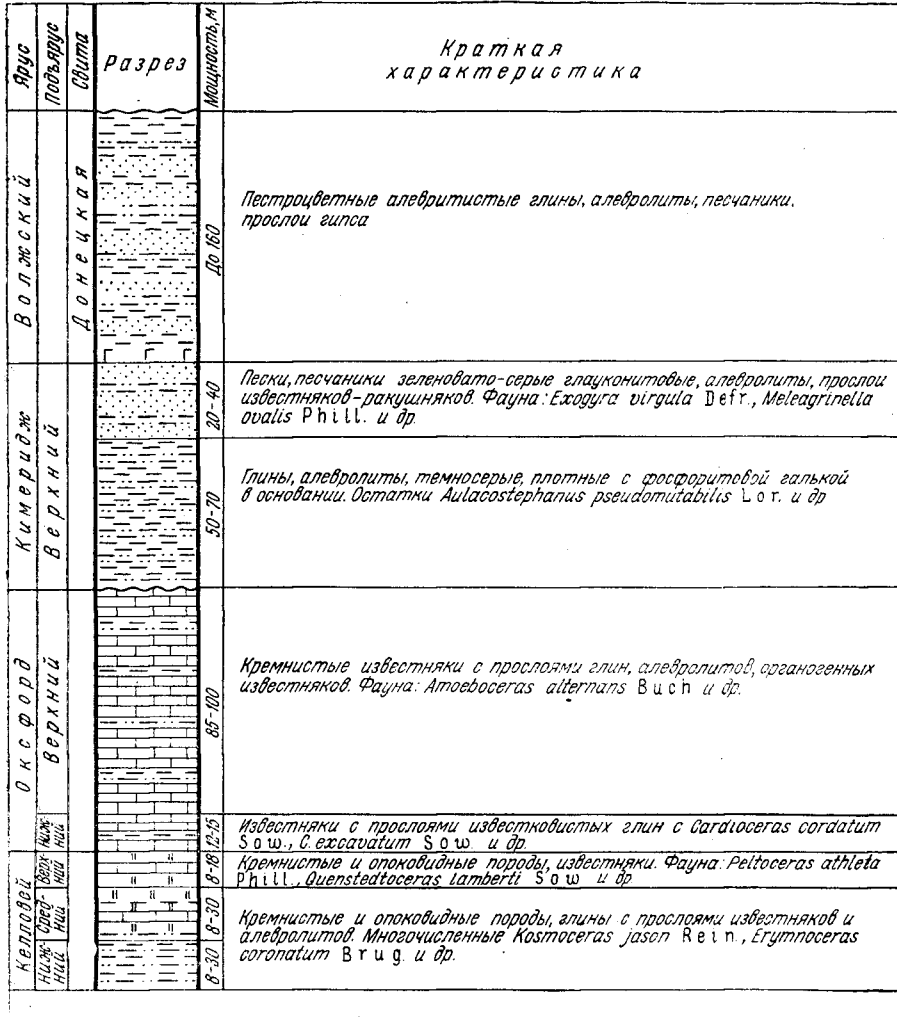 Ярус
Подъярус
Свита
Разрез
Мощность, м
Краткая
характеристика
Волжский
Донецкая
До 160
Пестроцветные алевритистые глины, алевролиты, песчаники,
прослои гипса
Кимеридж
Верхний
20-40
Пески, песчаники зеленовато-серые глауконитовые, алевролиты, прослои
известняков-ракушняков. Фауна: Exogyra virgula Defr., Meleagrinella
ovalis Phill. и др.
50-70
Глины, алевролиты, темносерые, плотные с фосфоритовой галькой
в основании. Остатки Aulacostephanus pseudomutabilis Lor. и др
Оксфорд
Верхний
85-100
Кремнистые известняки с прослоями глин, алевролитов, органогенных
известняков. Фауна: Amoeboceras alternans Buch и др.
Ниж-
ний
12-15
Известняки с прослоями известковистых глин с Cardioceras cordatum
Sow., C. excavatum Sow. и др.
Келловей
Верх-
ний
8-18
Кремнистые и опоковидные породы, известняки. Фауна: Peltoceras athleta
Phill., Quenstedtoceras lamberti Sow и др
Сред-
ний
8-30
Кремнистые и опоковидные породы, глины с прослоями известняков и
алевролитов. Многочисленные Kosmoceras jason Rein., Erymnoceras
coronatum Brug. и др.
Ниж-
ний
8-30